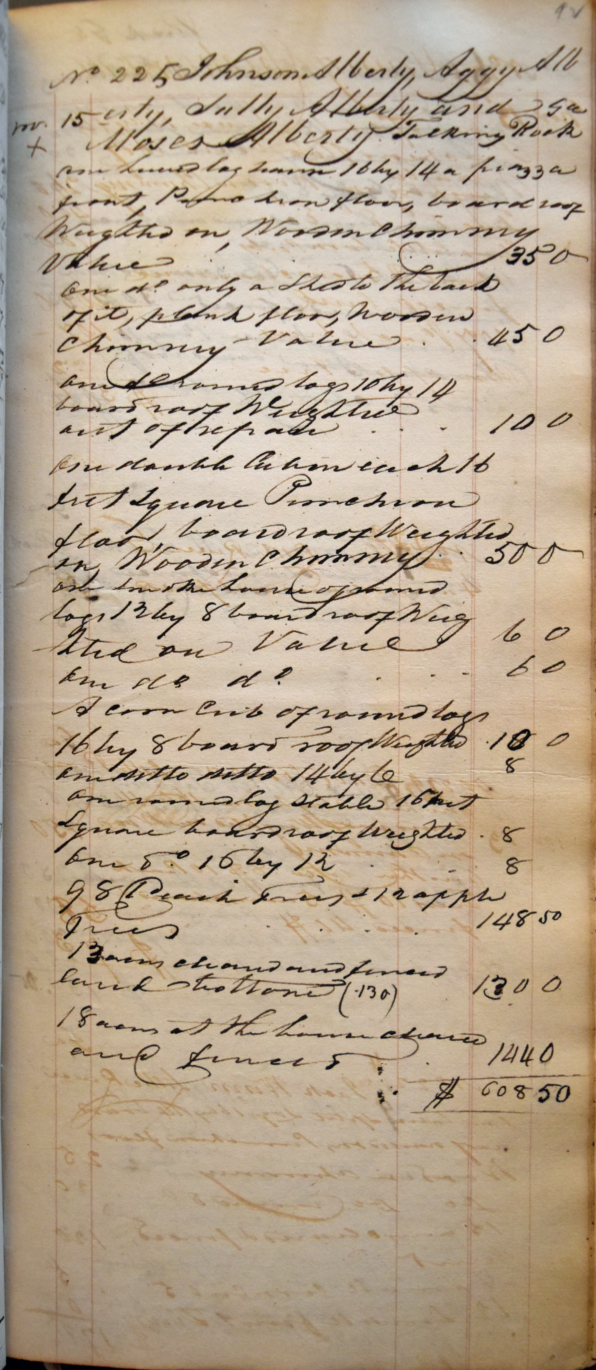 No 225 Johnson Alberty, Aggy Alb
15 erty, Sally Alberty and Ga
Moses Alberty Talking Rock
+
one hewed log house 16 by 14 a piazza
front, Puncheon floor, board roof
Weighted on, Wooden Chimney
Value 35 0
One do only a Shed to the back
of it, plank floor, Wooden
Chimney Value 45 0
one do round logs 10 by 14
board roof Weighted
out of repair 10 0
One double Cabin each 16
feet Square Puncheon
floor, board roof Weighted
on, Wooden Chimney 50 0
one smoke house of round
logs 12 by 8 board roof Weig
hted on Value 6 0
One do do 6 0
A corn Crib of round logs
16 by 8 board roof Weighted 10 0
one ditto ditto 14 by 6 8
one round log stable 16 feet
Square board roof Weighted 8
One do 16 by 12 8
98 Peach Trees & 12 apple
Trees 148 50
13 acres cleared and fenced
land bottom (130) 130 0
18 acres at the house cleared
and fenced 144 0
$ 608 50